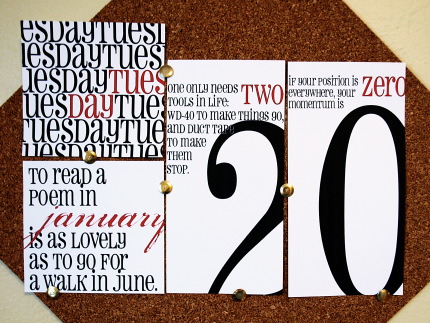 esDayTues
uesDayTUesi
JesDayTUes
UesDayTUe
uesDayTUes
esDayTues
TO read a
POEM IN
january
is as LOVELY
as TO GO FOR
a WaLK IN JUNE.
ONE ONLY NEEDS TWO
TOOLS IN LIFE:
WD-40 TO MAKE THINGS GO,
and DUCT TaPE
TO MAKE
THEM
STOP.
2
IF YOUR POSITION IS zero
everywhere, YOUR
MOMENTUM IS
0